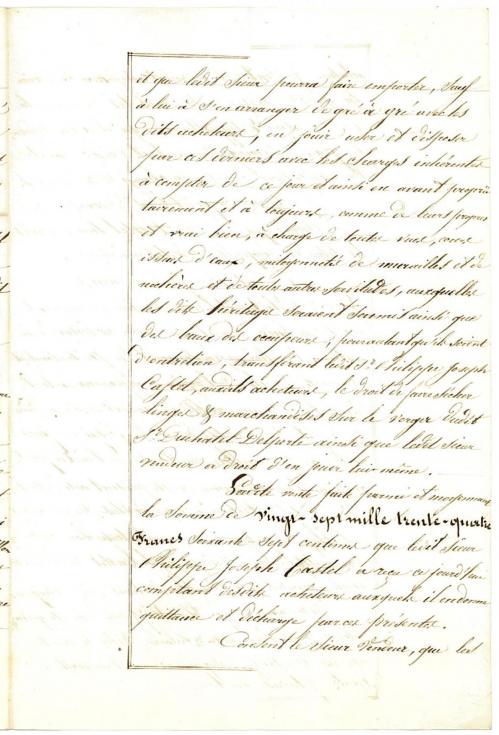 et que ledit Sieur pourra faire emporter, Sauf
à lui à S'en arranger de gré à gré avec les
dits acheteurs, en jouir user et disposer
par ces derniers avec les charges inhérentes
à compter de ce jour et ainsi en avant proprié
tairement et à toujours, comme de leurs propres
et vrai bien, à charge de toutes vues, cours
issues d'eaux, mitoyennetés de murailles et de
et de toutes autres Servitudes, auxquelles
les dits héritages seraient soumis ainsi que
des baux des, pour autant qu'ils soient
d'entretien, transférant ledit Sr. Philippe Joseph
Castel, auxdits acheteurs, le droit de faire Sécher
linges & marchandises Sur le verger dudit
Sr. Duchatel Delporte ainsi que ledit Sieur
vendeur a droit d'en jouir lui-même.
Ladite vente faite parmi et moyennant
la Somme de vingt-sept mille trente-quatre
Francs Soixante Sept centimes que ledit Sieur
Philippe Joseph Castel a reçu ce jourd'hui
comptant desdits acheteurs auxquels il en donne
quittance et décharge par ces présentes.
Consent le Sieur Vendeur, que les